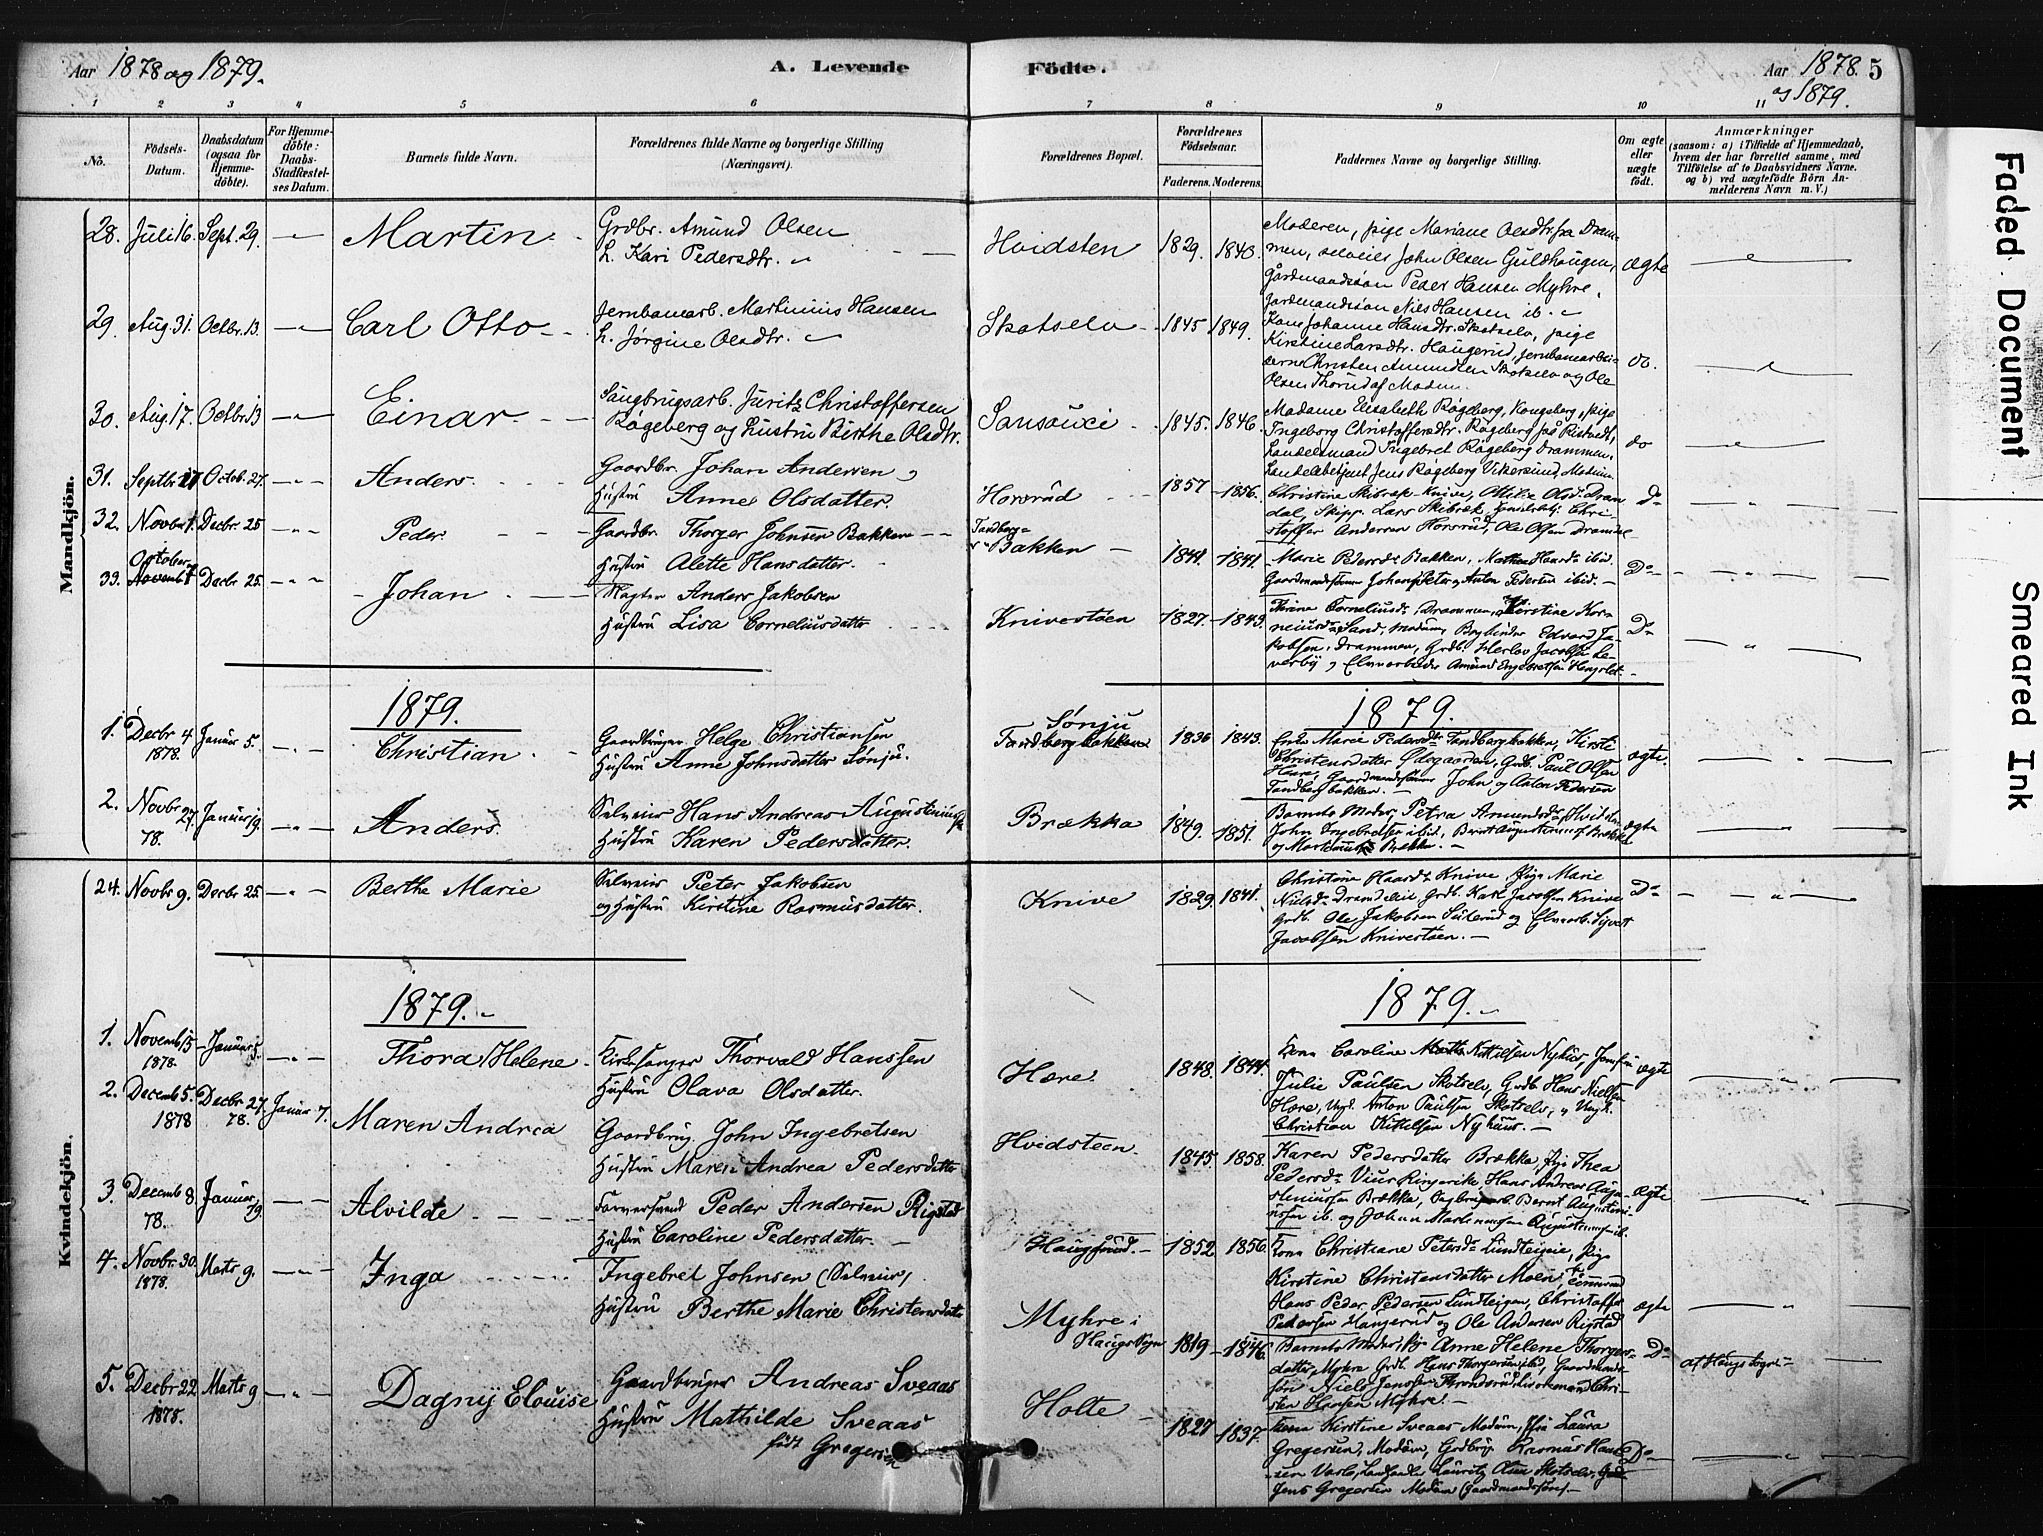 Aar 1878 og 1879.
A. Levende Födte.
Aar 1878. 5
og 1879.
1 2 3 4 5 6 7 8 9 10 11
No.
Födsels-Datum.
Daabsdatum (ogsaa for Hjemmedöbte).
For Hjemmedöbte: Daabs-Stadfæstelses Datum.
Barnets fulde Navn.
Forældrenes fulde Navne og borgerlige Stilling (Næringsvei).
Forældrenes Bopæl.
Forældrenes Födselsaar.
Faderens. Moderens.
Faddernes Navne og borgerlige Stilling.
Om ægte eller uægte födt.
Anmærkninger
(saasom: a) i Tilfælde af Hjemmedaab, hvem der har forrettet samme, med Tilföielse af to Daabsvidners Navne. og b) ved uægtefödte Börn Anmelderens Navn m. V.)
Mandkjön.
28. Juli 16. Sept. 29. Martin
Grdbr. Amund Olsen
h. Kari Pedersdtr.
Hvidsten 1829. 1840.
Moderen, pige Mariane Olsdtr fra Drammen, selveier John Olsen Guldhaugen,
Gårdmandssøn Peder Hansen Myhre,
Gardmandssøn Niels Hansen ib.
ægte
29. Aug. 31. Octbr. 13. Carl Otto
Jernbanearb. Martinius Hansen
h. Jørgine Olsdtr.
Skotselv 1845 1849.
Kone Johanne Hansdtr. Skotselv, pige
Kirstine Larsdtr. Haugerud, jernbanearbeiderne Christen Amundsen Skotselv og Ole
Olsen Thorud af Modum.
do.
30. Aug. 17. Octbr. 13 Einar
Saugbrugsarb. Juritz Christoffersen
Rågeberg og hustru Birthe Olsdtr.
Sansouci 1845. 1846.
Madame Elisabeth Rågeberg, Kongsberg, pige
Ingeborg Christoffersdtr. Rågeberg på Ristvedt,
Landelsmand Ingebret Rågeberg Drammen,
Landelsbetjent Jens Rågeberg Vikersund, Modum
do
31. Septbr. Octob. 27. Anders
Gaardbr. Johan Andersen
Hustru Anne Olsdatter.
Horsrud 1857 1856.
Christine Skibræk Knive, Ottilie Olsd. Dramdal, Skipp. Lars Skibræk, Handelsbetj. Christoffer Andersen Horsrud, Ole Olsen Dramdal
Do
32. Novbr. 1. Decbr. 25 Peder
Gaardbr. Thorger Johnsen Bakken
Hustru Alette Hansdatter.
Tandberg
Bakken 1841. 1841.
Marie Pedersdr Bakken, Mathea Haardr ibid.
Gaardmandssønner Johan Peter og Anton Pedersen ibid.
Do
October
33. Novemb Decbr 25. Johan
Anders Jakobsen
Hustru Lisa Corneliusdatter
Knivestøen 1827. 1843.
Thrine Corneliusdr Drammen, Kirstine Korneliusdr Sand, Modum, Bogbinder Edvard Jakobsen, Drammen, Grdb. Herlov Jacobsen
og Elvearbeider Amund Engebretsen
Do
1879. 1879.
1. Decbr 4 1878. Januar 5. Christian
Gaardbruger Helge Christiansen
Hustru Anne Johnsdatter Sønju.
Sønju
Tandbergbakken 1836 1843.
Enke Marie Pedersdr Tandbergbakken, Kirsti
Christensdatter Ødegaarden, Grdb. Paul Olsen
Hære, Gaardmandssønner John og Anton Pedersen
Tandbergbakken.
ægte.
2. Novbr 27. 78. Januar 19. Anders
Selveier Hans Andreas Augustiniussen
Hustru Karen Pedersdatter.
Brækka 1849. 1851.
Barnets Moder, Petra Amundsdr Hvidsten
John Ingebretsen ibid., Bernt Augustiniusen Brække
og Martinius Brække.
ægte
Kvindekjön.
24. Novbr. 9. Decbr 25. Berthe Marie
Selveier Peter Jakobsen
og Hustru Kirstine Rasmusdatter.
Knive 1829. 1841.
Christine Haardr Knive Pige Marie
Nilsdr Dramdalsei Grdb. Karl Jacobsen Knive
Grdb. Ole Jakobsen Suterud og Elvearb. Syvert
Jacobsen Knivestøen.
Do
1879. 1879.
1. Novemb 15 1878. Januar 5. Thora Helene
Kirkesanger Thorvald Hanssen
Hustru Olava Olsdatter.
Hære. 1848. 1844.
Kone Caroline Mathea Kittilsen Nyhus, Jomfru
Julie Paulsen Skotselv, Grdb. Hans Nielsen
Hære, Ungk. Anton Paulsen Skotselv, Ungk.
Christian Kittelsen Nyhuus.
ægte
2. Decemb 5. 1878 Decbr 27. 78. Januar 7. Maren Andrea
Gaardbrug. John Ingebretsen
Hustru Maren Andrea Pedersdatter
Hvidsteen. 1845. 1858.
Karen Pedersdatter Brækka, Pige Thea
Pedersdr Viur Ringerike, Hans Andreas Augustiniussen Brække, Sagbrugsarb. Bernt Augustiniussen ib. og Johan Martinussen Augustinusen ib.
ægte
3. Decemb 8. 78. Januar 19. Alvilde
Formersvend Peder Andersen Rigstad
Hustru Caroline Pedersdatter.
Haugsrud. 1852 1856.
Kone Christiane Petersdr Lundteigeie, Pige
Kirstine Christensdatter Moen, Tømmermand
Hans Peder Pedersen Lundteigen, Christoffer
Pedersen Haugerud og Ole Andersen Rigstad
ægte
4. Novbr. 30. 1878. Marts 9. Inga
Ingebret Johnsen (Selveier)
Hustru Berthe Marie Christensdatter
Myhre i
Haugs Sogn 1819 1846.
Barnets Moder, Pige Anne Helene Thorgersdatter, Myhre Grdb. Hans Thorgersen ibid, Gaardmandssøn Niels Jensen Throndsrud, Løsemand Christen Hansen Myhre.
Do
af Haugs Sogn
5. Decbr 22 1878. Marts 9 Dagny Elouise
Gaardbruger Andreas Sveaas
Hustru Mathilde Sveaas
født Gregersen
Holte 1827 1837.
Kone Kirstine Sveaas Modum, Pige Laura
Gregersen, Modum, Grdbrug. Rasmus Hansen Varlo, Landhandler Lauritz Olsen Skotselv,
Jens Gregersen Modum Gaardmandssøns.
Do
Faded Document
Smeared Ink